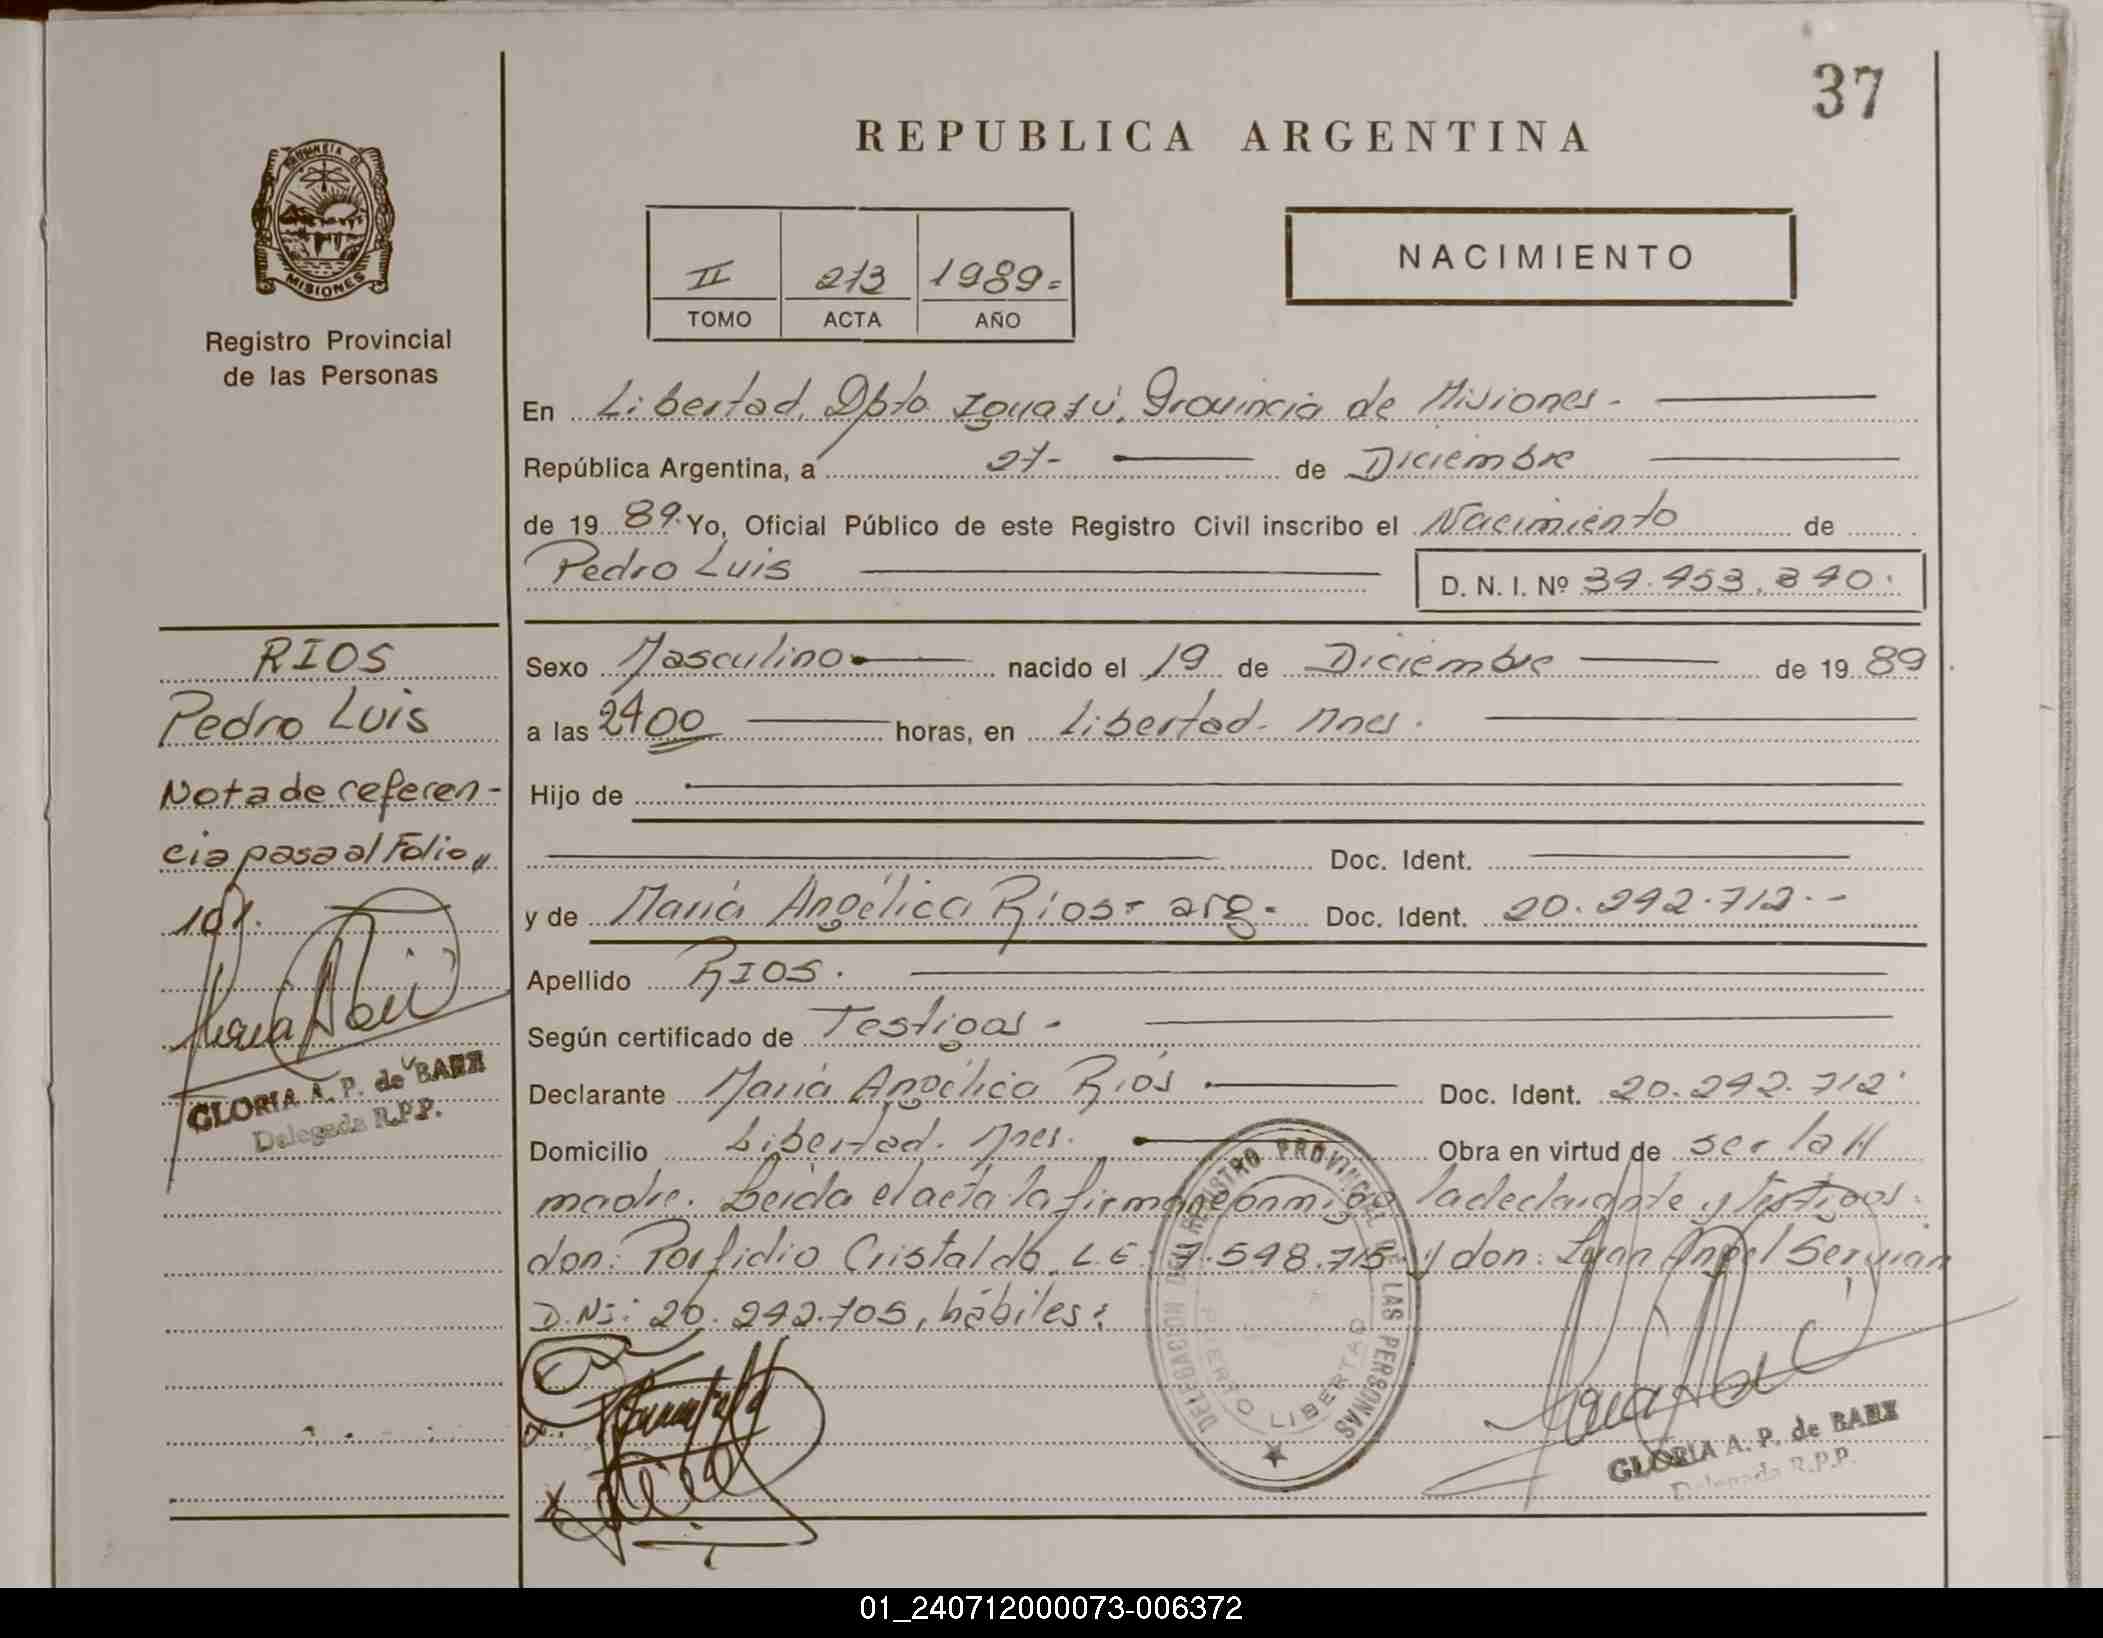 37
REPUBLICA ARGENTINA
PROVINCIA DE
MISIONES
Registro Provincial
de las Personas
II 213 1989=
TOMO ACTA AÑO
NACIMIENTO
En Libertad, Dpto Iguazú, Provincia de Misiones-
República Argentina, a 27- de Diciembre
de 19 89. Yo, Oficial Público de este Registro Civil inscribo el Nacimiento de
Pedro Luis D. N. I. Nº 34.453.840.
RIOS
Pedro Luis
Nota de referen-
cia pasa al Folio
101.
GLORIA A. P. de BAEZ
Delegada R.P.P.
Sexo Masculino nacido el 19 de Diciembre de 19 89
a las 2400 horas, en Libertad- Mnes.
Hijo de
Doc. Ident.
y de María Angélica Ríos- arg- Doc. Ident. 20.242.712.-
Apellido RIOS.
Según certificado de Testigos-
Declarante María Angélica Ríos Doc. Ident. 20.242.712
Domicilio Libertad. Mnes. Obra en virtud de ser la //
madre. Leída el acta la firman conmigo la declarante y testigos:
don: Porfidio Cristaldo, L.E: 7.548.715 y don: Juan Angel Servian
D.Ni: 20.242.705, hábiles:
DELEGACION DEL REGISTRO PROVINCIAL DE LAS PERSONAS
PUERTO LIBERTAD
GLORIA A. P. de BAEZ
Delegada R.P.P.
01_240712000073-006372